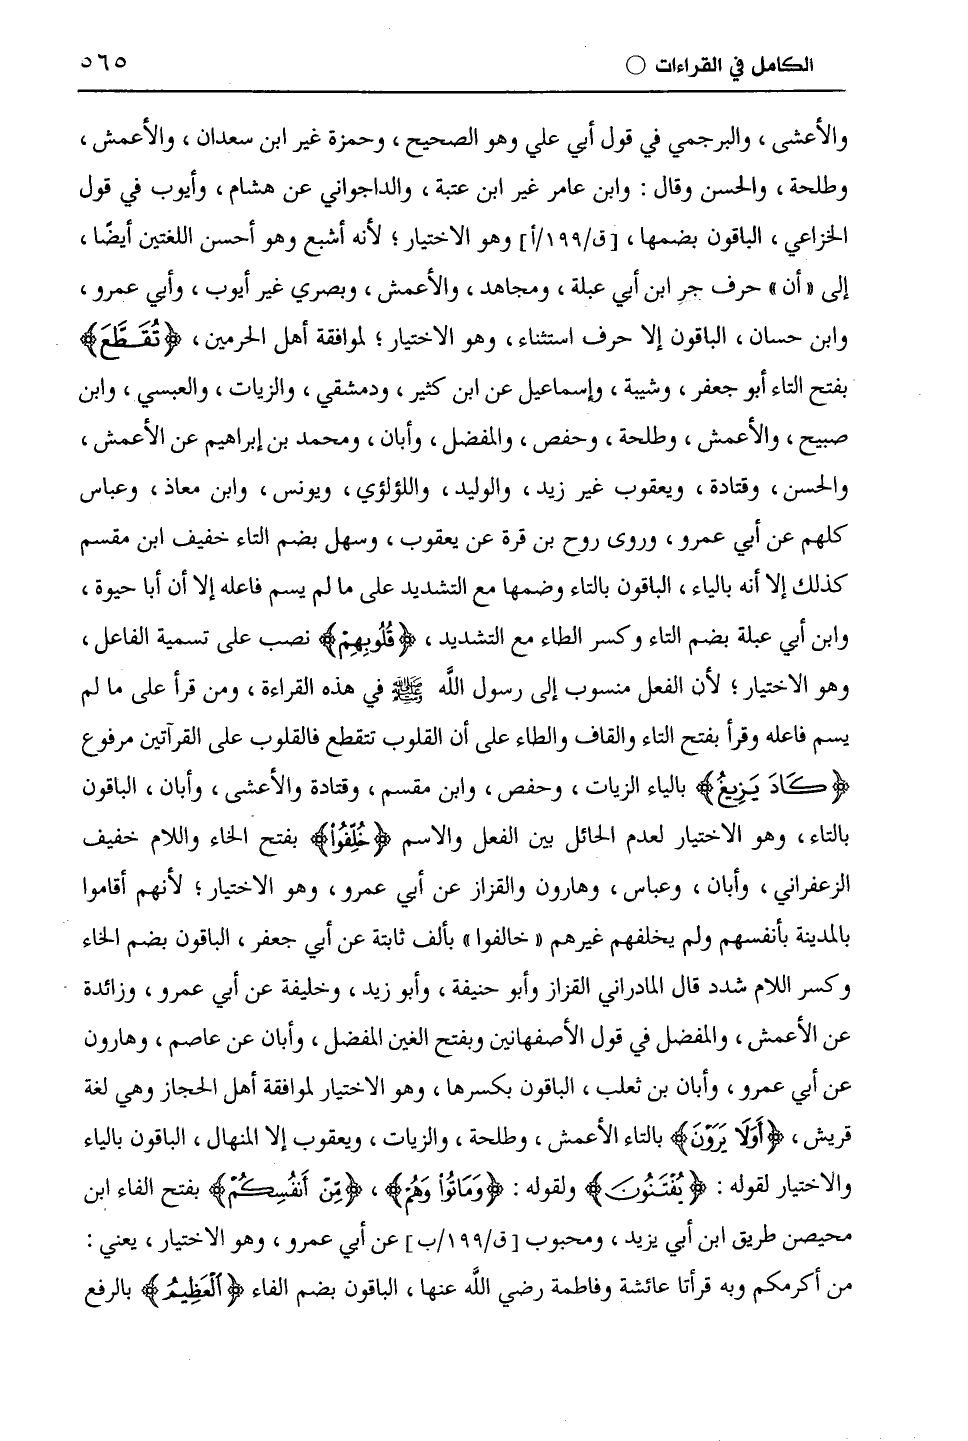 الكامل في القراءات ○ ٥٦٥
والأعشى ، والبرجمي في قول أبي علي وهو الصحيح ، وحمزة غير ابن سعدان ، والأعمش ،
وطلحة ، والحسن وقال : وابن عامر غير ابن عتبة ، والداجواني عن هشام ، وأيوب في قول
الخزاعي ، الباقون بضمها ، [ق/١٩٩/أ] وهو الاختيار ؛ لأنه أشبع وهو أحسن اللغتين أيضًا ،
إلى «أن» حرف جر ابن أبي عبلة ، ومجاهد ، والأعمش ، وبصري غير أيوب ، وأبي عمرو ،
وابن حسان ، الباقون إلا حرف استثناء ، وهو الاختيار ؛ لموافقة أهل الحرمين ، ﴿تُقَطَّعَ﴾
بفتح التاء أبو جعفر ، وشيبة ، وإسماعيل عن ابن كثير ، ودمشقي ، والزيات ، والعبسي ، وابن
صبيح ، والأعمش ، وطلحة ، وحفص ، والمفضل ، وأبان ، ومحمد بن إبراهيم عن الأعمش ،
والحسن ، وقتادة ، ويعقوب غير زيد ، والوليد ، واللؤلؤي ، ويونس ، وابن معاذ ، وعباس
كلهم عن أبي عمرو ، وروى روح بن قرة عن يعقوب ، وسهل بضم التاء خفيف ابن مقسم
كذلك إلا أنه بالياء ، الباقون بالتاء وضمها مع التشديد على ما لم يسم فاعله إلا أن أبا حيوة ،
وابن أبي عبلة بضم التاء وكسر الطاء مع التشديد ، ﴿قُلُوبِهِمْ﴾ نصب على تسمية الفاعل ،
وهو الاختيار ؛ لأن الفعل منسوب إلى رسول اللَّه ﷺ في هذه القراءة ، ومن قرأ على ما لم
يسم فاعله وقرأ بفتح التاء والقاف والطاء على أن القلوب تتقطع فالقلوب على القرآتين مرفوع
﴿كَادَ يَزِيغُ﴾ بالياء الزيات ، وحفص ، وابن مقسم ، وقتادة والأعشى ، وأبان ، الباقون
بالتاء ، وهو الاختيار لعدم الحائل بين الفعل والاسم ﴿خُلِّفُوا۟﴾ بفتح الخاء واللام خفيف
الزعفراني ، وأبان ، وعباس ، وهارون والقزاز عن أبي عمرو ، وهو الاختيار ؛ لأنهم أقاموا
بالمدينة بأنفسهم ولم يخلفهم غيرهم «خالفوا» بألف ثابتة عن أبي جعفر ، الباقون بضم الخاء
وكسر اللام شدد قال المادراني القزاز وأبو حنيفة ، وأبو زيد ، وخليفة عن أبي عمرو ، وزائدة
عن الأعمش ، والمفضل في قول الأصفهانين وبفتح الغين المفضل ، وأبان عن عاصم ، وهارون
عن أبي عمرو ، وأبان بن ثعلب ، الباقون بكسرها ، وهو الاختيار لموافقة أهل الحجاز وهي لغة
قريش ، ﴿أَوَلَا يَرَوْنَ﴾ بالتاء الأعمش ، وطلحة ، والزيات ، ويعقوب إلا المنهال ، الباقون بالياء
والاختيار لقوله : ﴿يُفْتَنُونَ﴾ ولقوله : ﴿وَمَاتُوا۟ وَهُمْ﴾ ، ﴿مِّنْ أَنفُسِكُمْ﴾ بفتح الفاء ابن
محيصن طريق ابن أبي يزيد ، ومحبوب [ق/١٩٩/ب] عن أبي عمرو ، وهو الاختيار ، يعني :
من أكرمكم وبه قرأتا عائشة وفاطمة رضي اللَّه عنها ، الباقون بضم الفاء ﴿ٱلْعَظِيمُ﴾ بالرفع